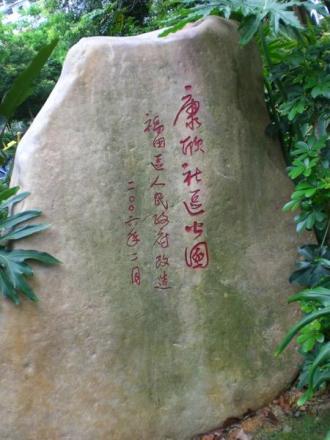 康欣社区公園
福田区人民政府改造
二〇〇六年二月